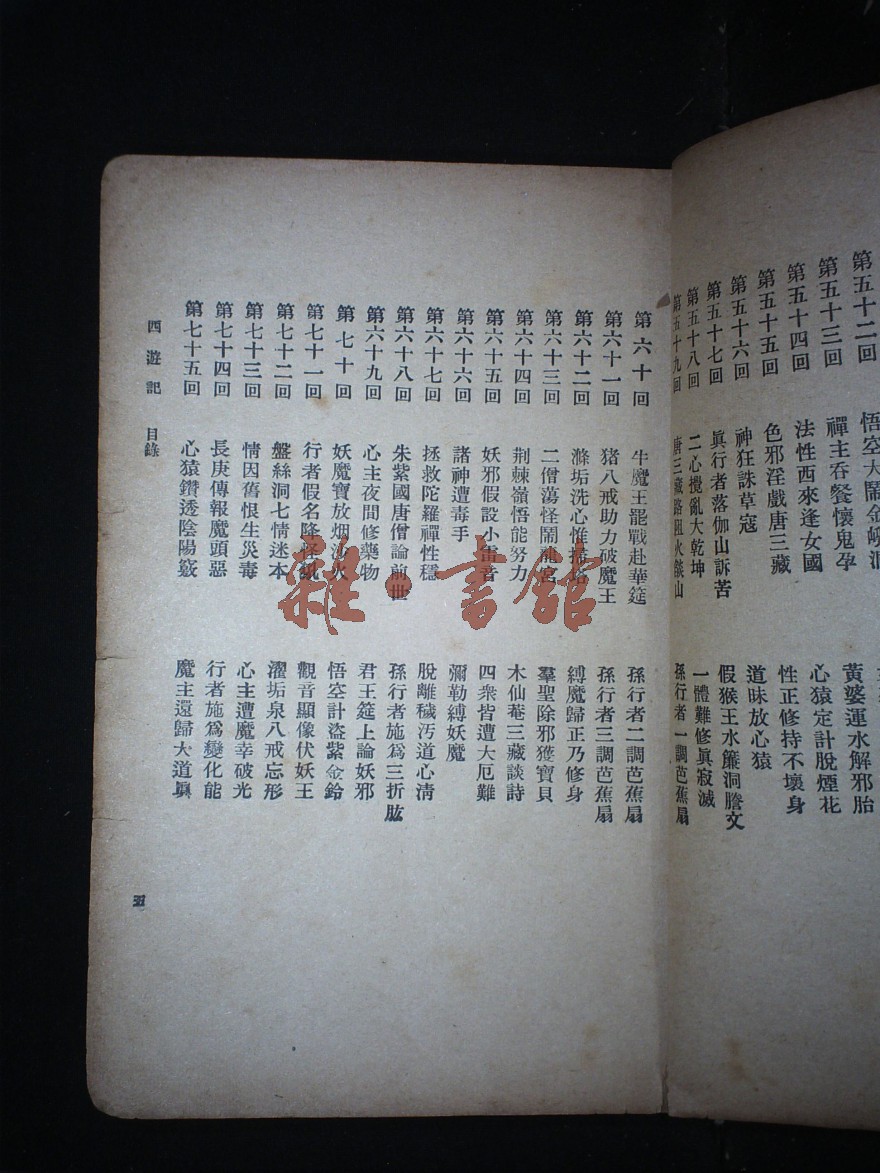 第五十二回 悟空大鬧金
第五十三回 禪主吞餐懷鬼孕 黃婆運水解邪胎
第五十四回 法性西來逢女國 心猿定計脫煙花
第五十五回 色邪淫戲唐三藏 性正修持不壞身
第五十六回 神狂誅草寇 道昧放心猿
第五十七回 眞行者落伽山訴苦 假猴王水簾洞謄文
第五十八回 二心攪亂大乾坤 一體難修眞寂滅
第五十九回 唐三藏路阻火燄山 孫行者一調芭蕉扇
第六十回 牛魔王罷戰赴華筵 孫行者二調芭蕉扇
第六十一回 猪八戒助力破魔王 孫行者三調芭蕉扇
第六十二回 滌垢洗心惟掃塔 縛魔歸正乃修身
第六十三回 二僧蕩怪鬧龍宮 羣聖除邪獲寶貝
第六十四回 荆棘嶺悟能努力 木仙菴三藏談詩
第六十五回 妖邪假設小雷音 四衆皆遭大厄難
第六十六回 諸神遭毒手 彌勒縛妖魔
第六十七回 拯救陀羅禪性穩 脫離穢汚道心淸
第六十八回 朱紫國唐僧論前世 孫行者施爲三折肱
第六十九回 心主夜間修藥物 君王筵上論妖邪
第七十回 妖魔寶放烟沙火 悟空計盜紫金鈴
第七十一回 行者假名降怪犼 觀音顯像伏妖王
第七十二回 盤絲洞七情迷本 濯垢泉八戒忘形
第七十三回 情因舊恨生災毒 心主遭魔幸破光
第七十四回 長庚傳報魔頭惡 行者施爲變化能
第七十五回 心猿鑽透陰陽竅 魔主還歸大道眞
西遊記 目錄
五
雜·書館